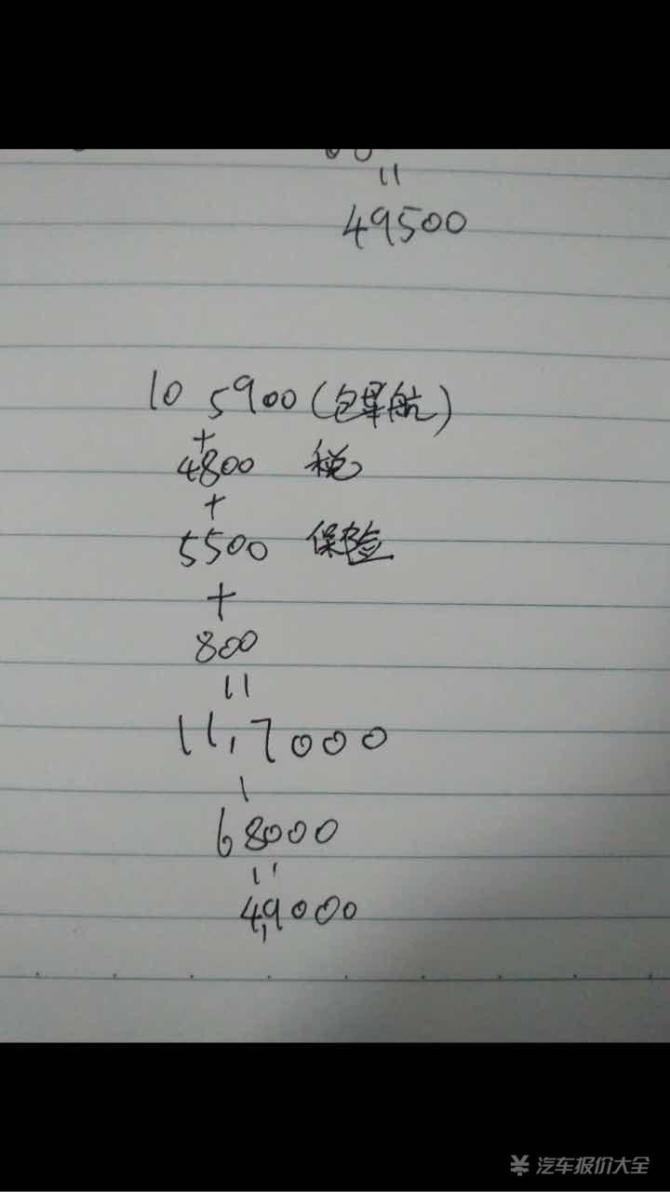 =
49500
105900(包导航)
+
4800 税
+
5500 保险
+
800
=
11,7000
-
68000
=
4,9000
汽车报价大全